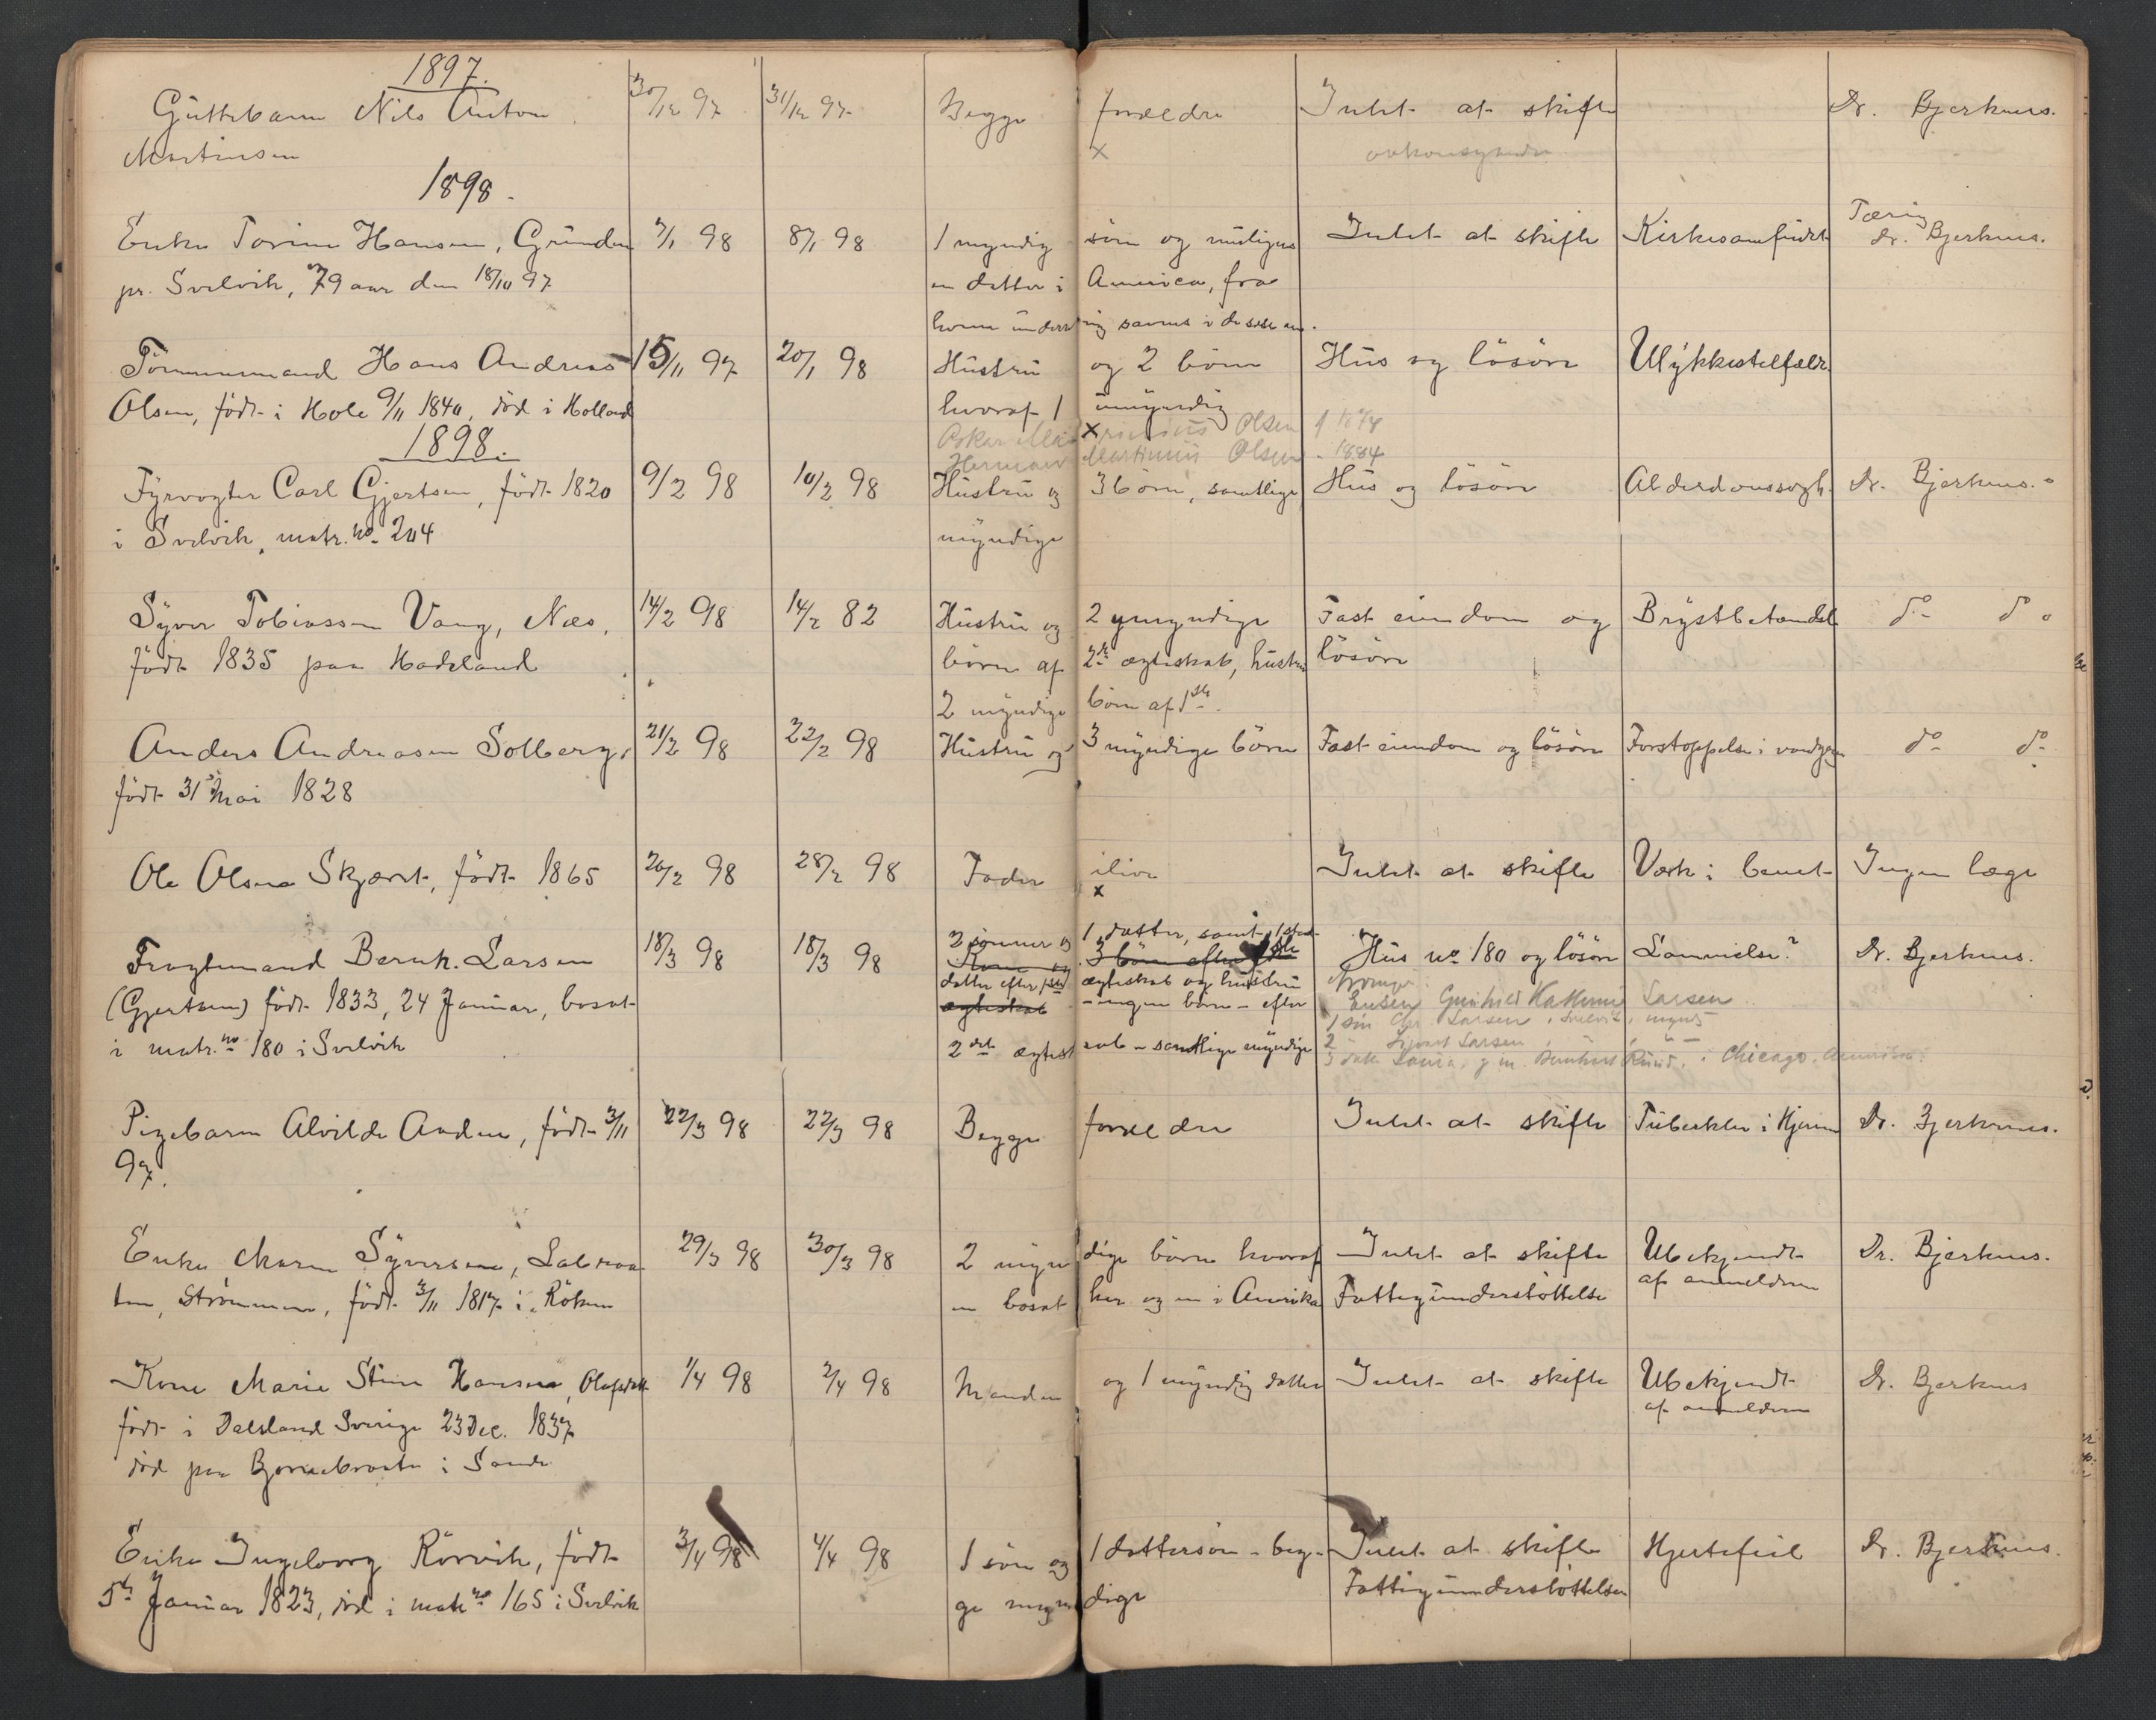 1897.
Guttebarn Nils Anton 30/12 97 31/12 97 Begge forældre Intet at skifte Dr. Bjerknes.
Martinsen x
1898.
Enke Torine Hansen, Grunden 7/1 98 8/1 98 1 myndig søn og muligens Intet at skifte Kirkesamfundet Tæring Dr. Bjerknes.
pr. Svelvik, 79 aar den 18/10 97 en datter i America, fra
hvem underretning savnes i de siste aar.
Tømmermand Hans Andreas 15/11 97 20/1 98 Hustru og 2 börn Hus og lösöre Ulykkestilfælde
Olsen, født i Hole 9/11 1840, död i Holland hvoraf 1 umyndig
x Olsen f 1874
1898. Herman Martinius Olsen - 1884
Fyrvogter Carl Gjertsen, född 1820 9/2 98 10/2 98 Hustru og 3 börn, samtlige Hus og lösöre Alderdomssvagh. Dr. Bjerknes.
i Svelvik, matr. no 204 myndige
Syver Tobiassen Vang, Næs, 14/2 98 14/2 82 Hustru og 2 umyndige Fast eiendom og Brystbetændelse do do
født 1835 paa Hadeland börn af 2det ægteskab, hustru lösöre
2 myndige börn af 1ste.
Anders Andreasen Solberg, 21/2 98 22/2 98 Hustru og 3 myndige börn Fast eiendom og lösöre Forstoppelse i do do
født 31 Mai 1828
Ole Olsen Skjæret, født 1865 26/2 98 28/2 98 Fader ilive Intet at skifte Værk i benet Ingen læge
x
Fragtemand Bernh. Larsen 18/3 98 18/3 98 2 sönner og 1 datter, samt 1 Hus no 180 og lösöre Lammelse? Dr. Bjerknes.
Kone og 3 börn efter 1ste
(Gjertsen) født 1833, 24 Januar, bosat datter efter 1ste ægteskab og hustru Arvinger
ægteskab - ingen börn - efter Enken Gunhild Kathrine Larsen
i matr. no 180 i Svelvik 2det ægteskab - samtlige myndige 1 sön Chr. Larsen, Svelvik, myndig
2 - Sigvart Larsen, - , " -
3 datter Laura, g. m. Bernhard Ruud, i Chicago, Amerika
Pigebarn Alvilde Andersen, født 3/11 22/3 98 22/3 98 Begge forældre Intet at skifte Tuberkler i Hjernen Dr. Bjerknes.
97.
Enke Maren Syversen, 29/3 98 30/3 98 2 myndige börn hvoraf Intet at skifte Ubekjendt Dr. Bjerknes.
Strømmen, født 3/11 1817 i Röken en bosat her og en i Amerika Fattigunderstøttelse af anmelderen
Kone Marie Stine Hansen, Olafsdatt 1/4 98 2/4 98 Manden og 1 myndig datter Intet at skifte Ubekjendt Dr. Bjerknes
født i Dalsland Sverige 23 Dec. 1837 af anmelderen
död paa Bjørnebraaten i Sande
Enke Ingeborg Rörvik, født 3/4 98 4/4 98 1 sön og 1 dattersön - beg- Intet at skifte Hjertefeil Dr. Bjerknes.
5te Januar 1823, död i matr no 165 i Svelvik ge myndige Fattigunderstøttelse